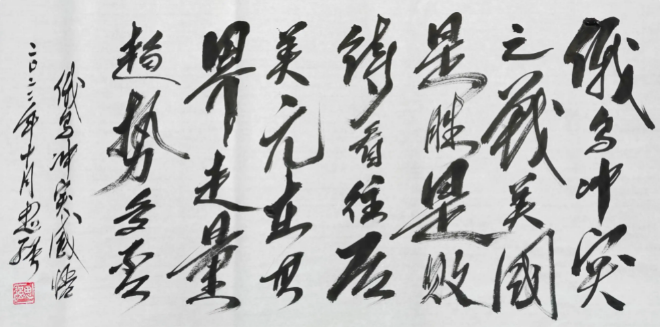 俄乌冲突
之战美国
是胜是败
待看往后
美元在世
界走量
趋势
俄乌冲突感悟
二〇二二年十月忠